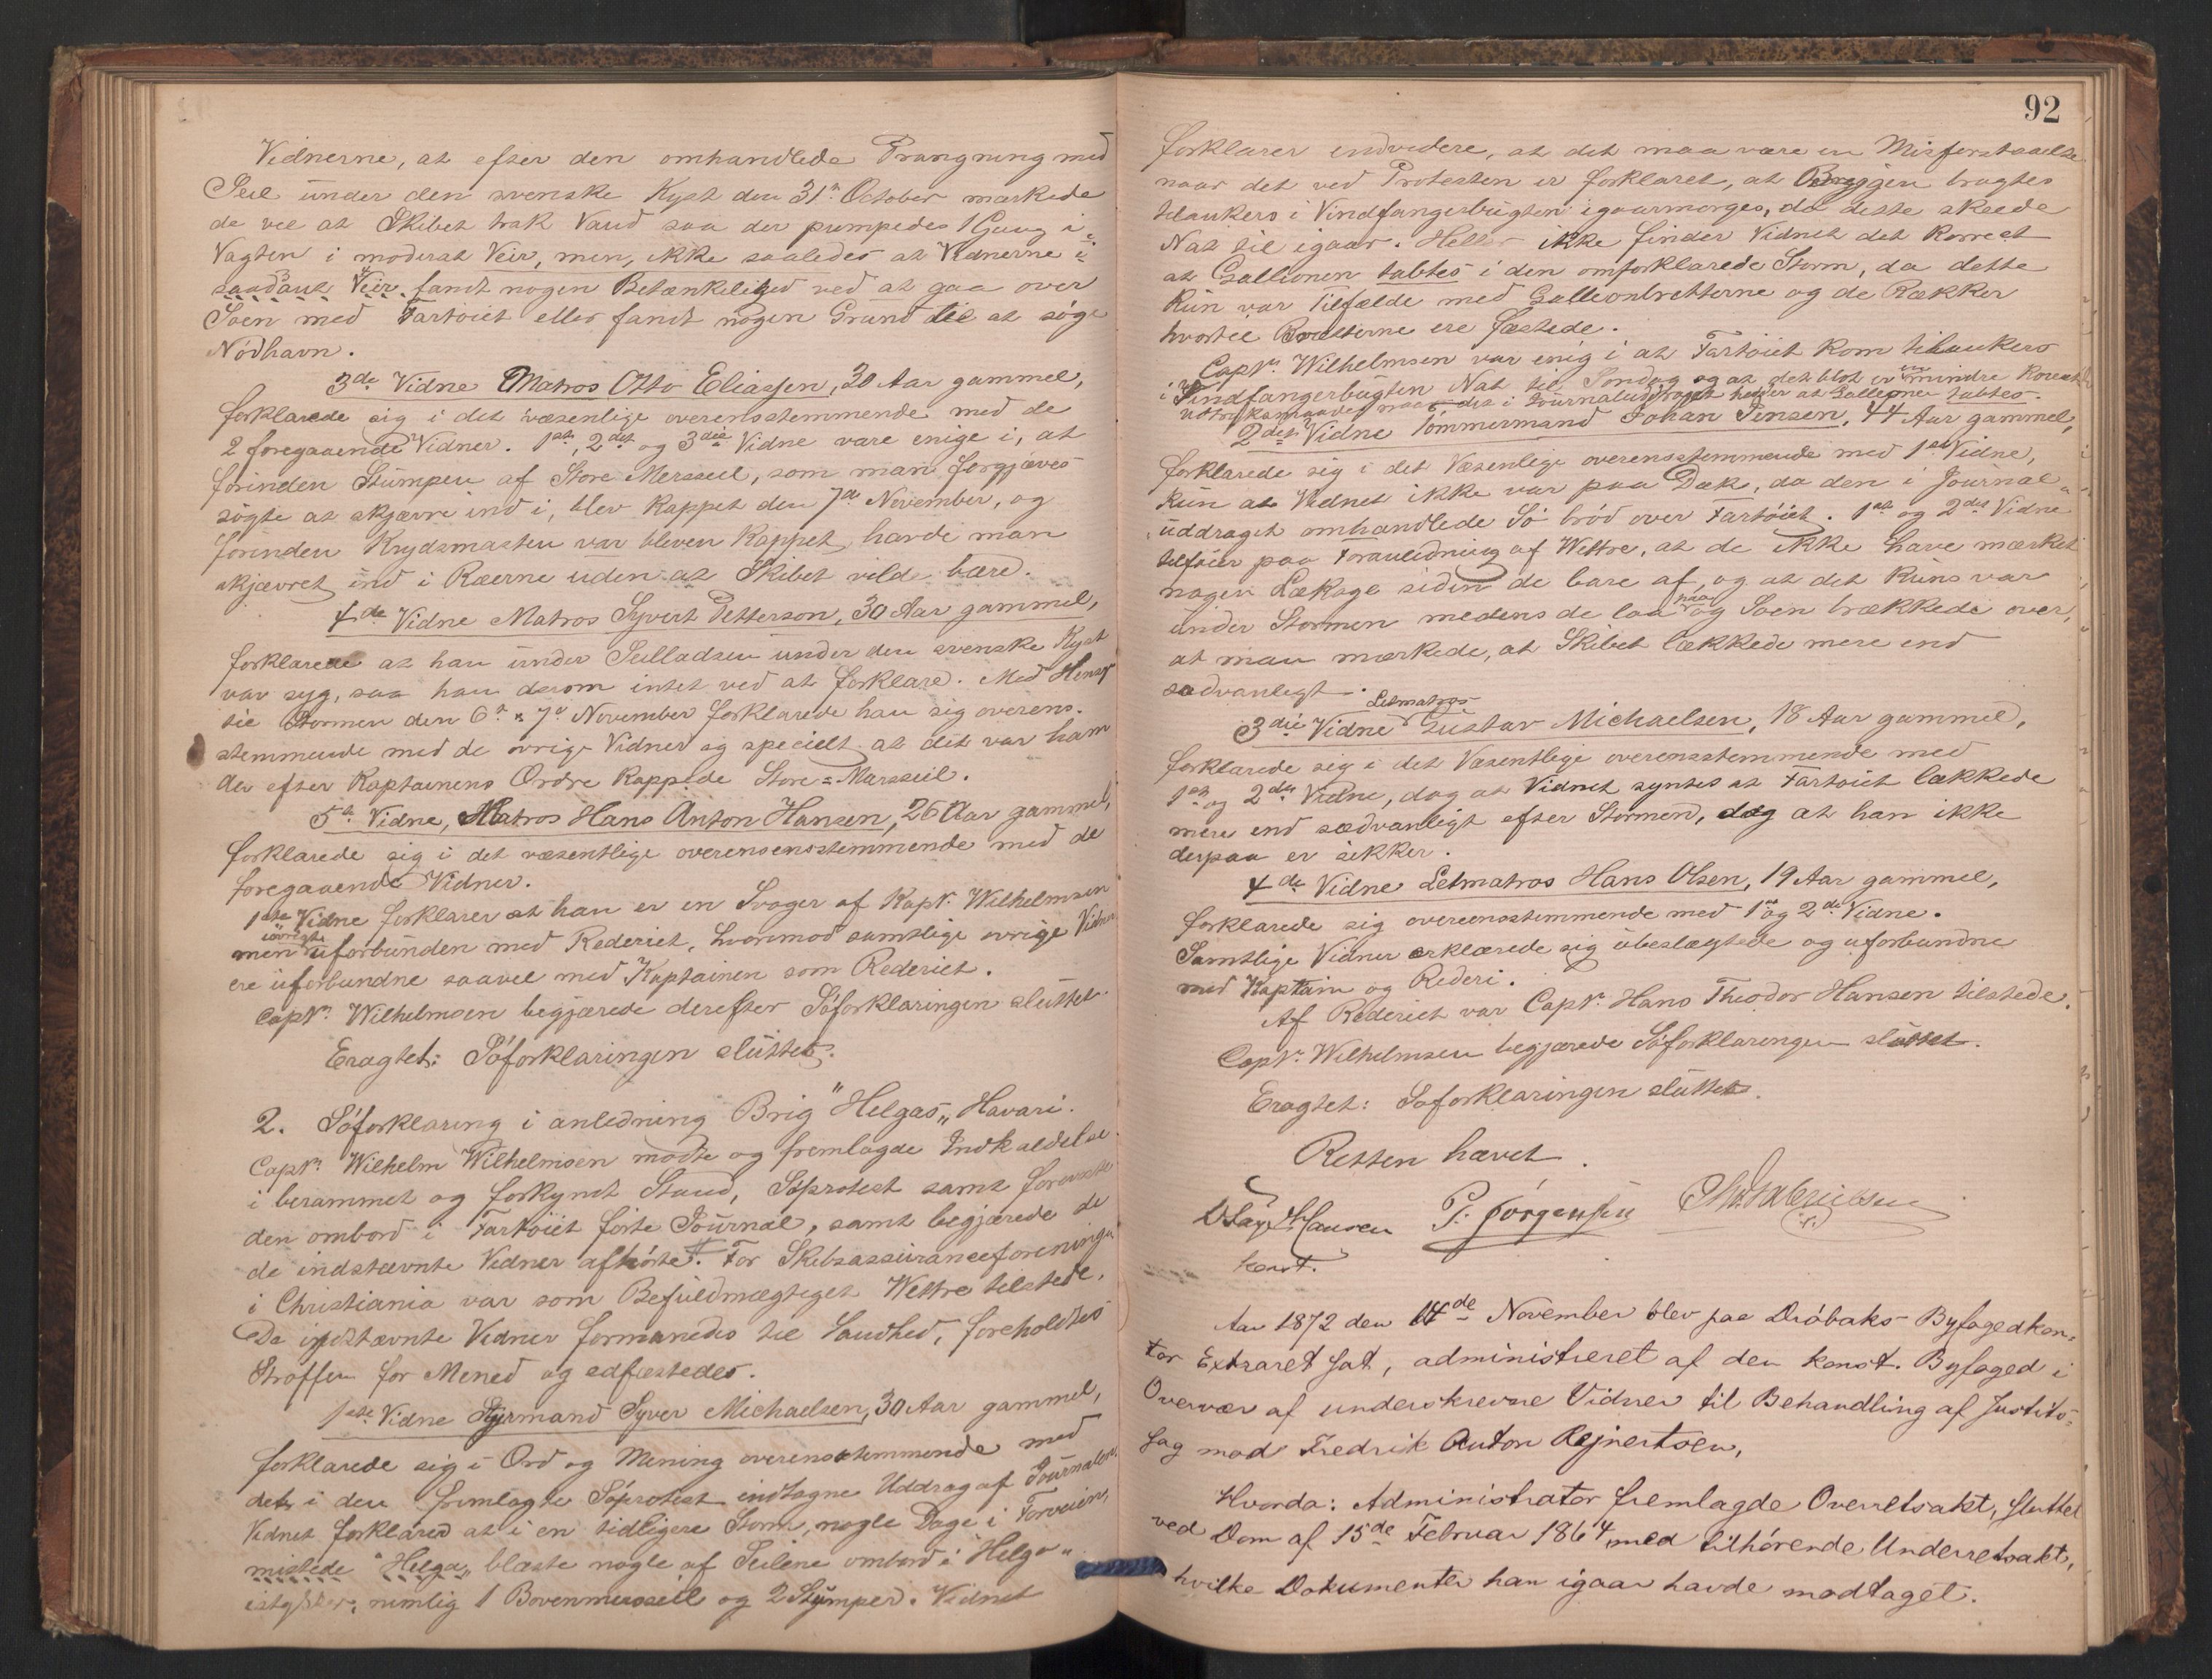 Vidnerne, at efter den omhandlede Prangning med
Seil under den svenske Kyst den 31te October mærkede
de vel at Skibet trak Vand saa der pumpedes 1 Gang i
Vagten i moderat Veir, men, ikke saaledes at Vidnerne i
saadant Veir fandt nogen Betænkelighed ved at gaa over
Søen med Fartøiet eller fandt nogen Grund til at søge
Nødhavn.
3de Vidne Matros Otto Eliassen, 30 Aar gammel,
forklarede sig i det væsenlige overensstemmende med de
2 foregaaende Vidner. 1ste, 2det og 3die Vidne vare enige i, at
forinden Stumpen af Store Mersseil, som man forgjæves
søgte at skjære ind i, blev kappet den 7de November, og
forinden Krydsmasten var bleven kappet, havde man
skjævret ind i Ræerne uden at Skibet vilde bære.
4de Vidne Matros Syvert Petterson, 30 Aar gammel,
forklarede at han under Seiladsen under den svenske Kyst
var syg, saa han derom intet ved at forklare. Med Hensyn
til Stormen den 6te & 7de November forklarede han sig overens-
stemmende med de øvrige Vidner og specielt at det var ham
der efter Kaptainens Ordre kappede Store=Mersseil.
5te Vidne, Matros Hans Anton Hansen, 26 Aar gammel,
forklarede sig i det væsentlige overensensstemmende med de
foregaaende Vidner.
1ste Vidne forklarer at han er en Svoger af Kapt. Wilhelmsen
men iøvrigt uforbunden med Rederiet, hvorimod samtlige øvrige Vidner
ere uforbundne saavel med Kaptainen som Rederiet.
Captn Wilhelmsen begjærede derefter Søforklaringen sluttet.
Eragtet: Søforklaringen sluttet.
2. Søforklaring i anledning Brig "Helgas„ Havari.
Captn Wilhelm Wilhelmsen mødte og fremlagde Indkaldelse
i berammet og forkyndt Stand, Søprotest samt foreviste
den ombord i Fartøiet førte Journal, samt begjærede de
de indstævnte Vidner afhørte. For Skibsassuranceforeningen
i Christiania var som Befuldmægtiget Wettre tilstede.
De indstævnte Vidner formanedes til Sandhed, foreholdtes
Straffen for Mened og edfæstedes.
1ste Vidne Styrmand Syver Michaelsen, 30 Aar gammel,
forklarede sig i Ord og Mening overensstemmende med
det i den fremlagte Søprotest indtagne Uddrag af Journalen.
Vidnet forklared at i en tidligere Storm, nogle Dage i Forveien,
mistede "Helga„ blæste nogle af Seilene ombord i "Helga„
istykker, nemlig 1 Bovenmersseil og 2 Stumper. Vidnet
92
forklarer endvidere, at det maa være en Misforstaaelse
naar det ved Protesten er forklaret, at Briggen bragtes
tilankers i Vindfangerbugten igaarmorges, da dette skeede
Nat til igaar. Heller ikke finder Vidnet det korrect
at Gallionen tabtes i den omforklarede Storm, da dette
kun var Tilfælde med Gallionbretterne og de Rækker
hvortil Bretterne ere fæstede.
Captn Wilhelmsen var enig i at Fartøiet kom tilankers
i Vindfangerbugten Nat til Søndag og at det blot er en mindre korrect
Udtryksmaade naar det i Journaluddraget heder at Gallionen tabtes.
2det Vidne Tømmermand Johan Jensen, 44 Aar gammel,
forklarede sig i det Væsenlige overensstemmende med 1ste Vidne,
kun at Vidnet ikke var paa Dæk, da den i Journal-
uddraget omhandlede Sø brød over Fartøiet. 1ste og 2det Vidne
tilføier paa Foranledning af Wettre, at de ikke have mærket
nogen Lækage siden de bare af, og at det kuns var
under Stormen medens de laa paa og Søen brækkede over,
at man mærkede, at Skibet lækkede mere end
sædvanligt.
3die Vidne Letmatros Gustav Michaelsen, 18 Aar gammel,
forklarede sig i det Væsentlige overensstemmende med
1ste og 2det Vidne, dog at Vidnet syntes at Fartøiet lækkede
mere end sædvanligt efter Stormen, dog at han ikke
derpaa er sikker.
4de Vidne Letmatros Hans Olsen, 19 Aar gammel,
forklarede sig overeensstemmende med 1ste og 2det Vidne.
Samtlige Vidner erklærede sig ubeslægtede og uforbundne
med Kaptain og Rederi.
Af Rederiet var Captn Hans Theodor Hansen tilstede.
Captn Wilhelmsen begjærede Søforklaringen sluttet.
Eragtet: Søforklaringen sluttes.
Retten hævet.
Hansen P. Jørgensen
konst.
Aar 1872 den 14de November blev paa Drøbaks Byfogedkon-
tor Extraret sat, administreret af den konst. Byfoged i
Overvær af underskrevne Vidner til Behandling af Justits-
sag mod Fredrik Anton Rejnertsen,
Hvorda: Administrator fremlagde Overretsakt, sluttet
ved Dom af 15de Februar 1864 med tilhørende Underretsakt,
hvilke Dokumenter han igaar havde modtaget.